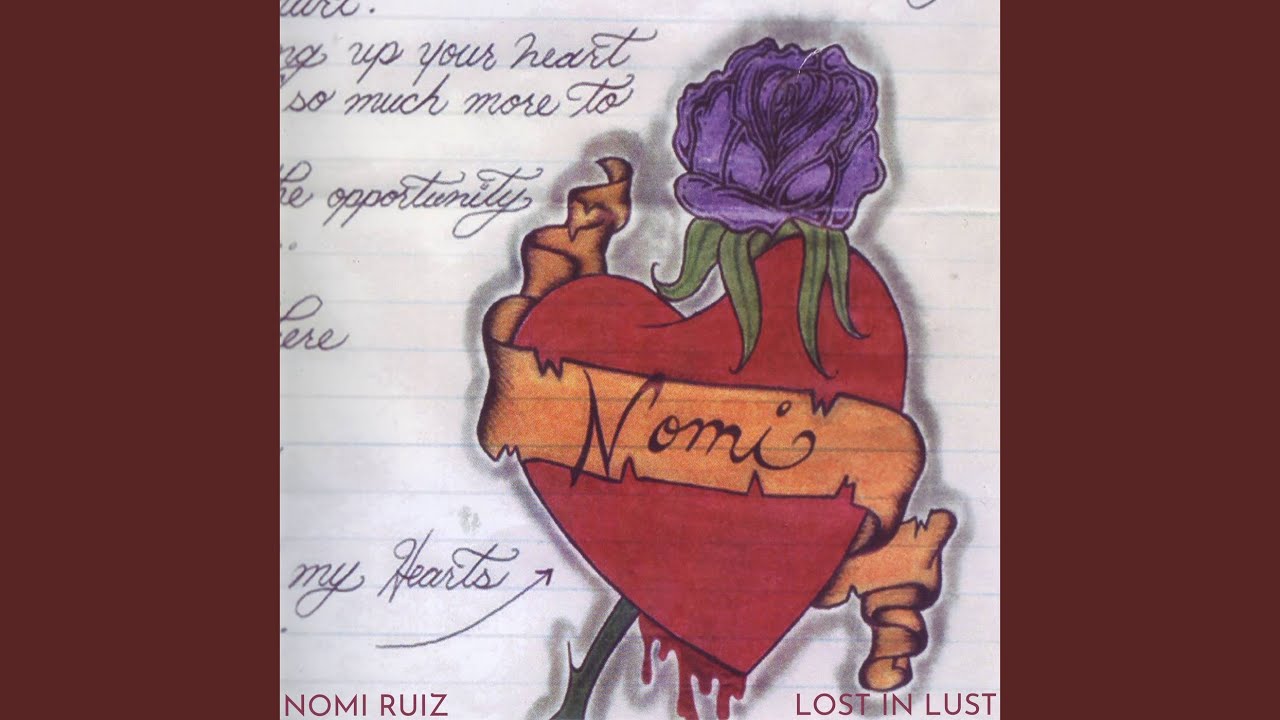 ng up your heart
so much more to
he opportunity
..
here
Nomi
my Hearts
NOMI RUIZ
LOST IN LUST